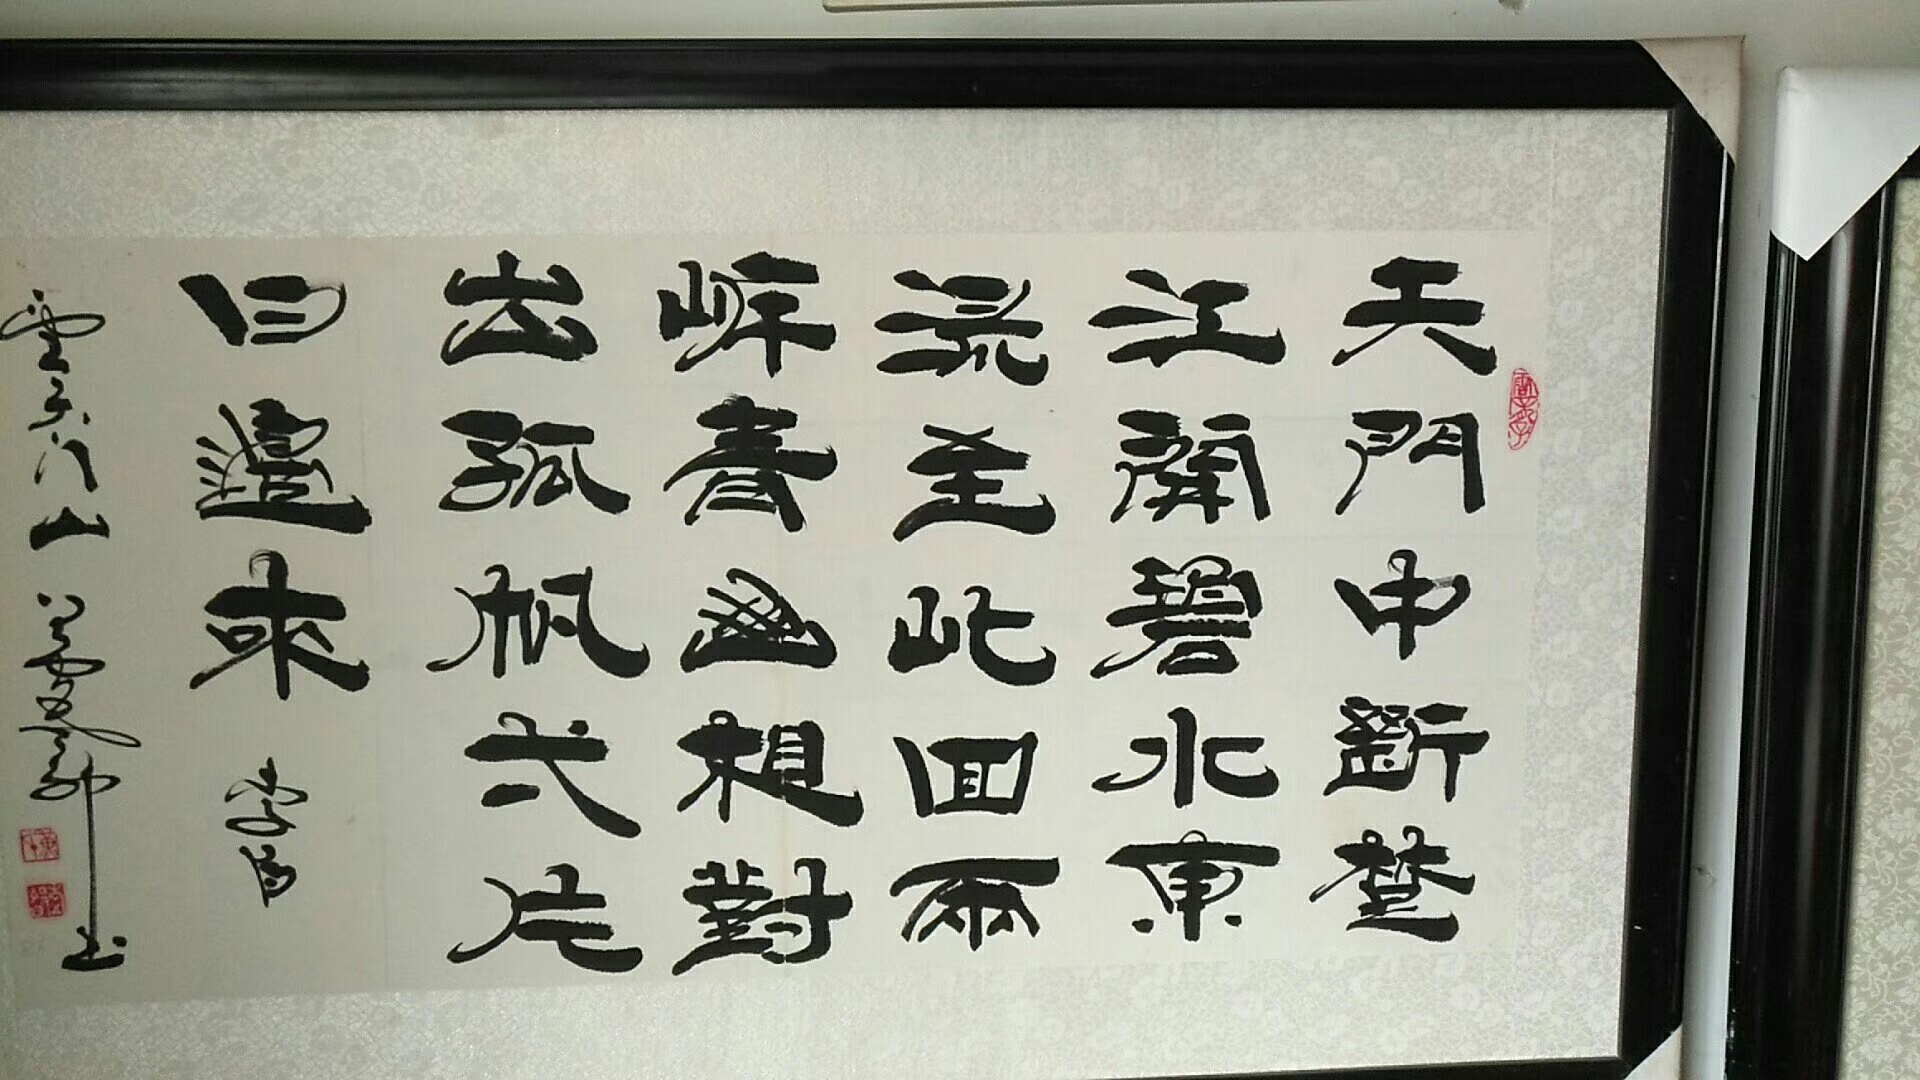 天門中斷楚
江開碧水東
流至此回兩
岸青山相對
出孤帆弌片
日邊來 李白
望天门山
书